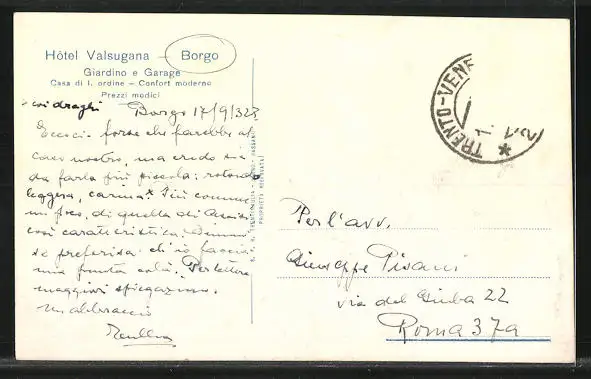 Hôtel Valsugana — Borgo
Giardino e Garage
Casa di I. ordine — Confort moderno
Prezzi modici
coi draghi
Borgo 17/9/32
Eccoci. forse che farebbe al
caso nostro, ma credo sia
da farla più piccola: rotonda
leggera, carina* Più comune
un poco, di quella di
così caratteristica. Dimmi
se preferisci ch'io faccia
una puntata colà. Per lettera
maggiori spiegazioni.
Un abbraccio
TRENTO-VENE
PROPRIETÀ RISERVATA
Per l'avv.
Giuseppe Pisani
via del Giuba 22
Roma 37a